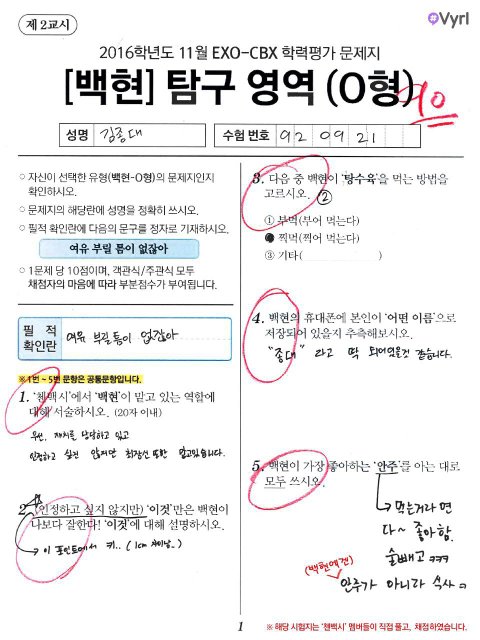 제 2교시
#Vyrl
2016학년도 11월 EXO-CBX 학력평가 문제지
[백현] 탐구 영역 (O형)
90
성명 김종대 수험 번호 920921
○ 자신이 선택한 유형(백현-O형)의 문제지인지
확인하시오.
○ 문제지의 해당란에 성명을 정확히 쓰시오.
○ 필적 확인란에 다음의 문구를 정자로 기재하시오.
여유 부릴 틈이 없잖아
○ 1문제 당 10점이며, 객관식/주관식 모두
채점자의 마음에 따라 부분점수가 부여됩니다.
필 적
확인란
여유 부릴 틈이 없잖아
※ 1번 ~ 5번 문항은 공통문항입니다.
1. '첸백시'에서 '백현'이 맡고 있는 역할에
대해 서술하시오. (20자 이내)
우선, 재치를 담당하고 있고
인정하고 싶진 않지만 최장신 또한 맡고있습니다.
2. '(인정하고 싶지 않지만) '이것'만은 백현이
나보다 잘한다! '이것'에 대해 설명하시오.
이 포인트에서 키.. (1cm 차이남)
3. 다음 중 백현이 '탕수육'을 먹는 방법을
고르시오. ②
① 부먹(부어 먹는다)
② 찍먹(찍어 먹는다)
③ 기타( )
4. 백현의 휴대폰에 본인이 '어떤 이름'으로
저장되어 있을지 추측해보시오.
"종대" 라고 딱 되어있을것 같습니다.
5. 백현이 가장 좋아하는 '안주'를 아는 대로
모두 쓰시오.
먹는거라면
다~ 좋아함.
술빼고 ㅋㅋㅋ
(백현에겐)
안주가 아니라 식사
1
※ 해당 시험지는 '첸백시' 멤버들이 직접 풀고, 채점하였습니다.